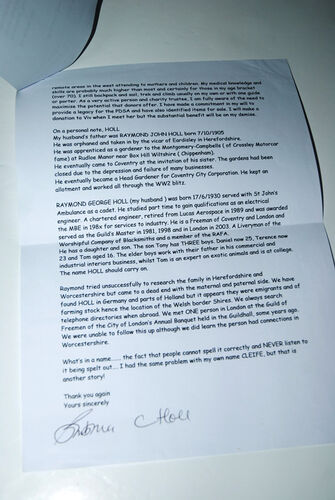 remote areas in the west attending to mothers and children. My medical knowledge and
skills are probably much higher than most and certainly for those in my age bracket
(over 70). I still backpack and sail, trek and climb usually on my own or with one guide
or porter. As a very active person and charity trustee, I am fully aware of the need to
maximise the potential that donors offer. I have made a commitment in my will to
provide a legacy for the PDSA and have also identified items for sale. I will make a
donation to Viv when I meet her but the substantial benefit will be on my demise.
On a personal note, HOLL
My husband's father was RAYMOND JOHN HOLL born 7/10/1905
He was orphaned and taken in by the vicar of Eardisley in Herefordshire.
He was apprenticed as a gardener to the Montgomery-Campbells ( of Crossley Motorcar
fame) at Rudloe Manor near Box Hill Wiltshire ( Chippenham).
He eventually came to Coventry at the invitation of his sister. The gardens had been
closed due to the depression and failure of many businesses.
He eventually became a Head Gardener for Coventry City Corporation. He kept an
allotment and worked all through the WW2 blitz.
RAYMOND GEORGE HOLL (my husband ) was born 17/6/1930 served with St John's
Ambulance as a cadet. He studied part time to gain qualifications as an electrical
engineer. A chartered engineer, retired from Lucas Aerospace in 1989 and was awarded
the MBE in 198x for services to industry. He is a Freeman of Coventry and London and
served as the Guild's Master in 1981, 1998 and in London in 2003. A Liveryman of the
Worshipful Company of Blacksmiths and a member of the RAFA.
He has a daughter and son. The son Tony has THREE boys. Daniel now 25, Terence now
23 and Tom aged 16. The elder boys work with their father in his commercial and
industrial interiors business, whilst Tom is an expert on exotic animals and is at college.
The name HOLL should carry on.
Raymond tried unsuccessfully to research the family in Herefordshire and
Worcestershire but came to a dead end with the maternal and paternal side. We have
found HOLL in Germany and parts of Holland but it appears they were emigrants and of
farming stock hence the location of the Welsh border Shires. We always search
telephone directories when abroad. We met ONE person in London at the Guild of
Freemen of the City of London's Annual Banquet held in the Guildhall, some years ago.
We were unable to follow this up although we did learn the person had connections in
Worcestershire.
What's in a name....... the fact that people cannot spell it correctly and NEVER listen to
it being spelt out.... I had the same problem with my own name CLEIFE, but that is
another story!
Thank you again
Yours sincerely
C Holl